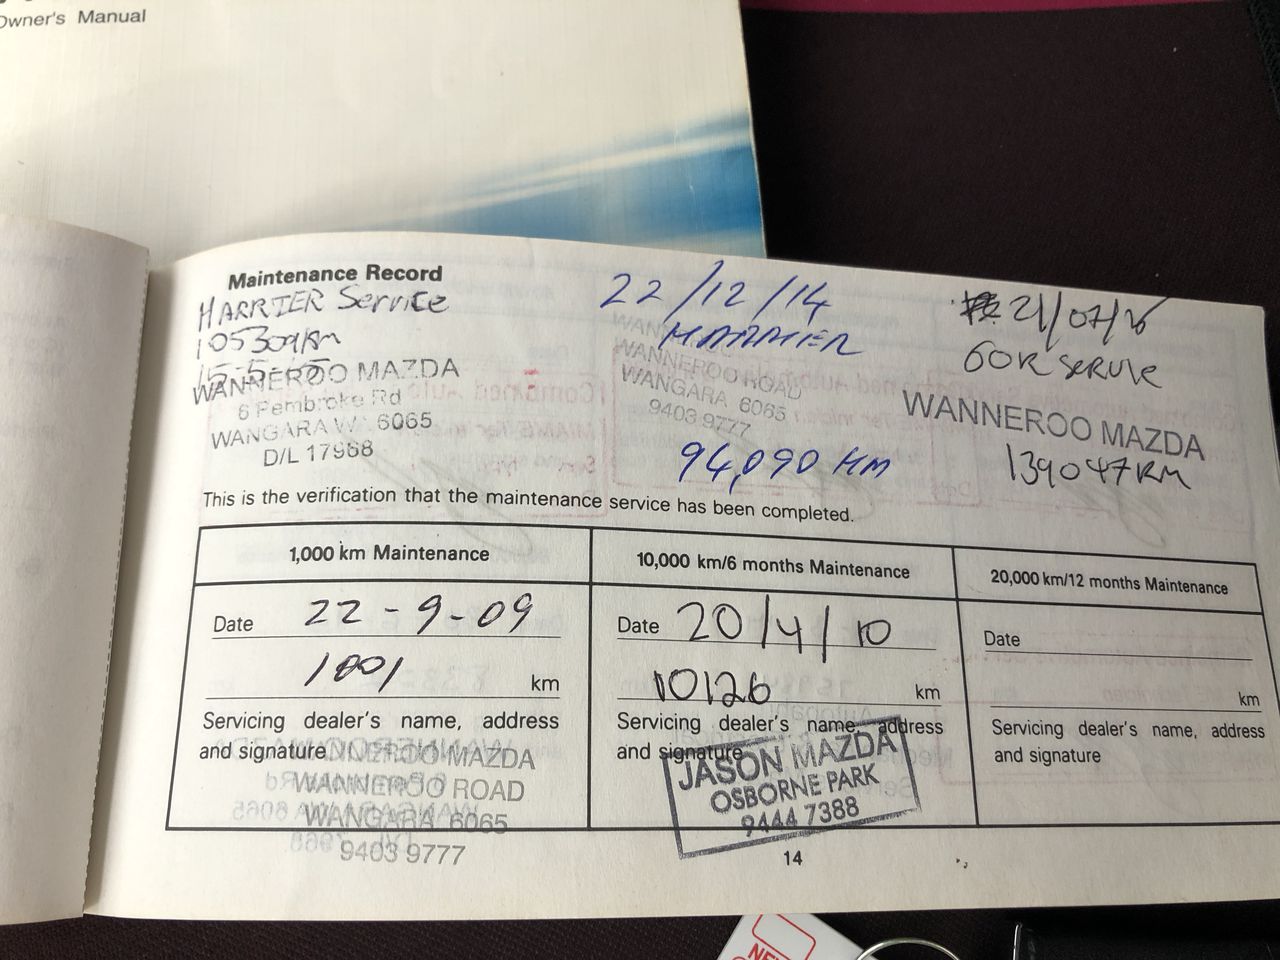 Owner's Manual
Maintenance Record
HARRIER Service
105309km
15-5-15
WANNEROO MAZDA
6 Pembroke Rd
WANGARA W 6065
D/L 17968
22/12/14
HARRIER
WANNEROO ROAD
WANGARA 6065
9403 9777
94,090 KM
21/07/16
60K SERVICE
WANNEROO MAZDA
139047KM
This is the verification that the maintenance service has been completed.
1,000 km Maintenance
Date 22-9-09
1001 km
Servicing dealer's name, address
and signature
WANNEROO MAZDA
WANNEROO ROAD
WANGARA 6065
9403 9777
10,000 km/6 months Maintenance
Date 20/4/10
10126 km
Servicing dealer's name, address
and signature
JASON MAZDA
OSBORNE PARK
9444 7388
20,000 km/12 months Maintenance
Date
km
Servicing dealer's name, address
and signature
14